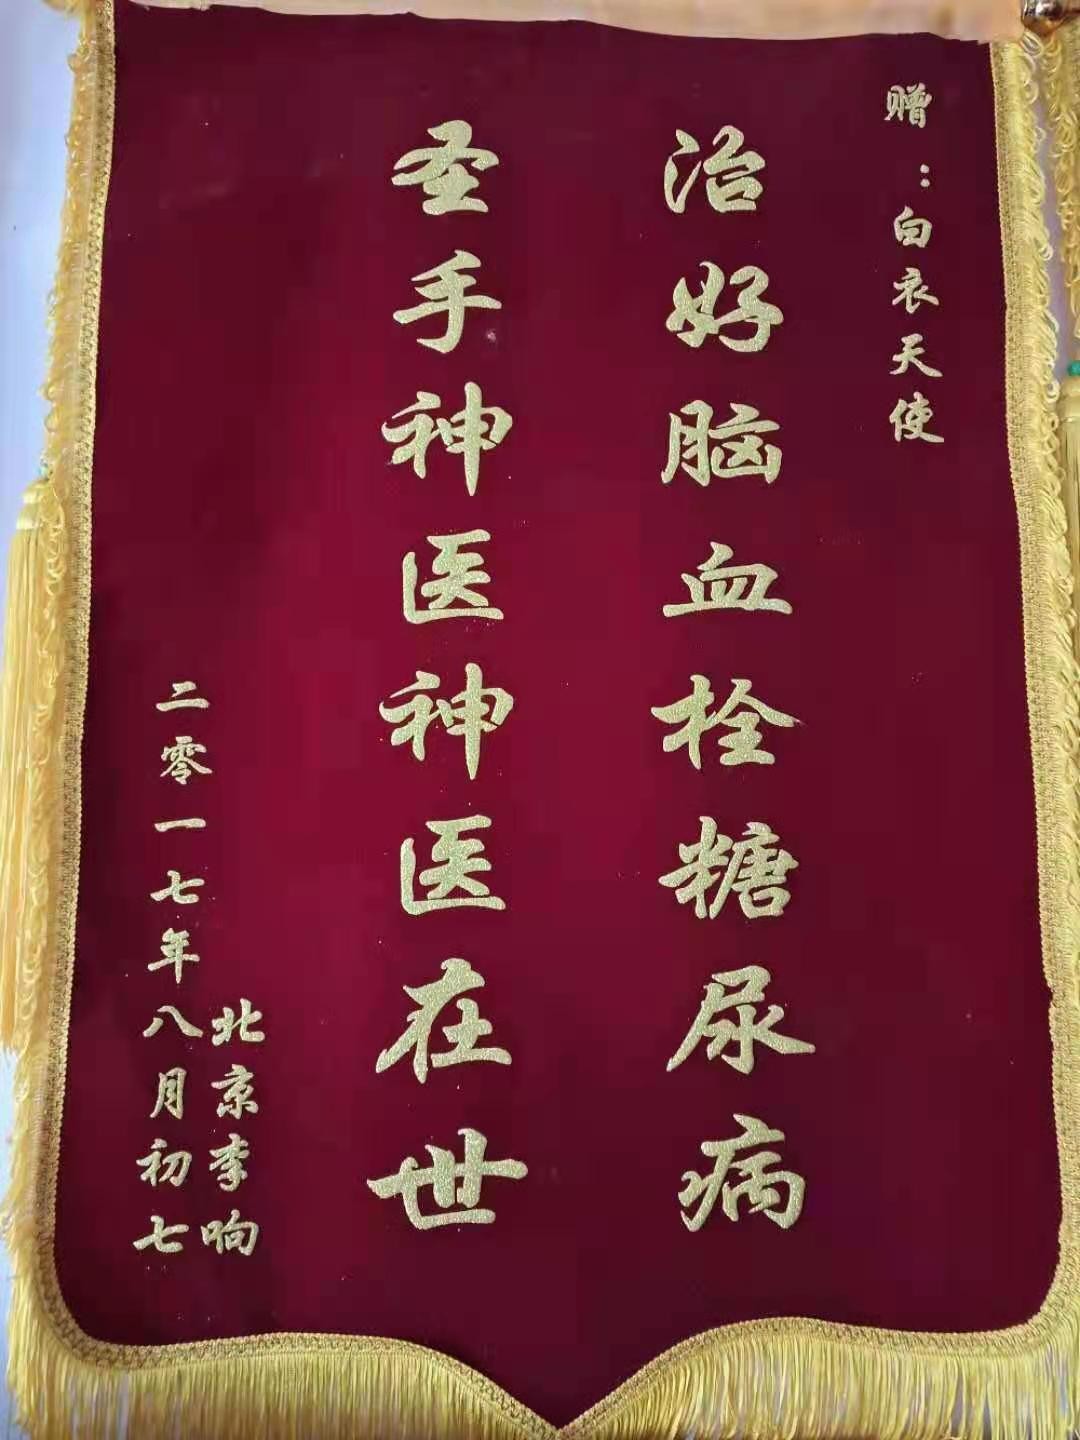 赠：白衣天使
治好脑血栓糖尿病
圣手神医神医在世
北京李响
二零一七年八月初七